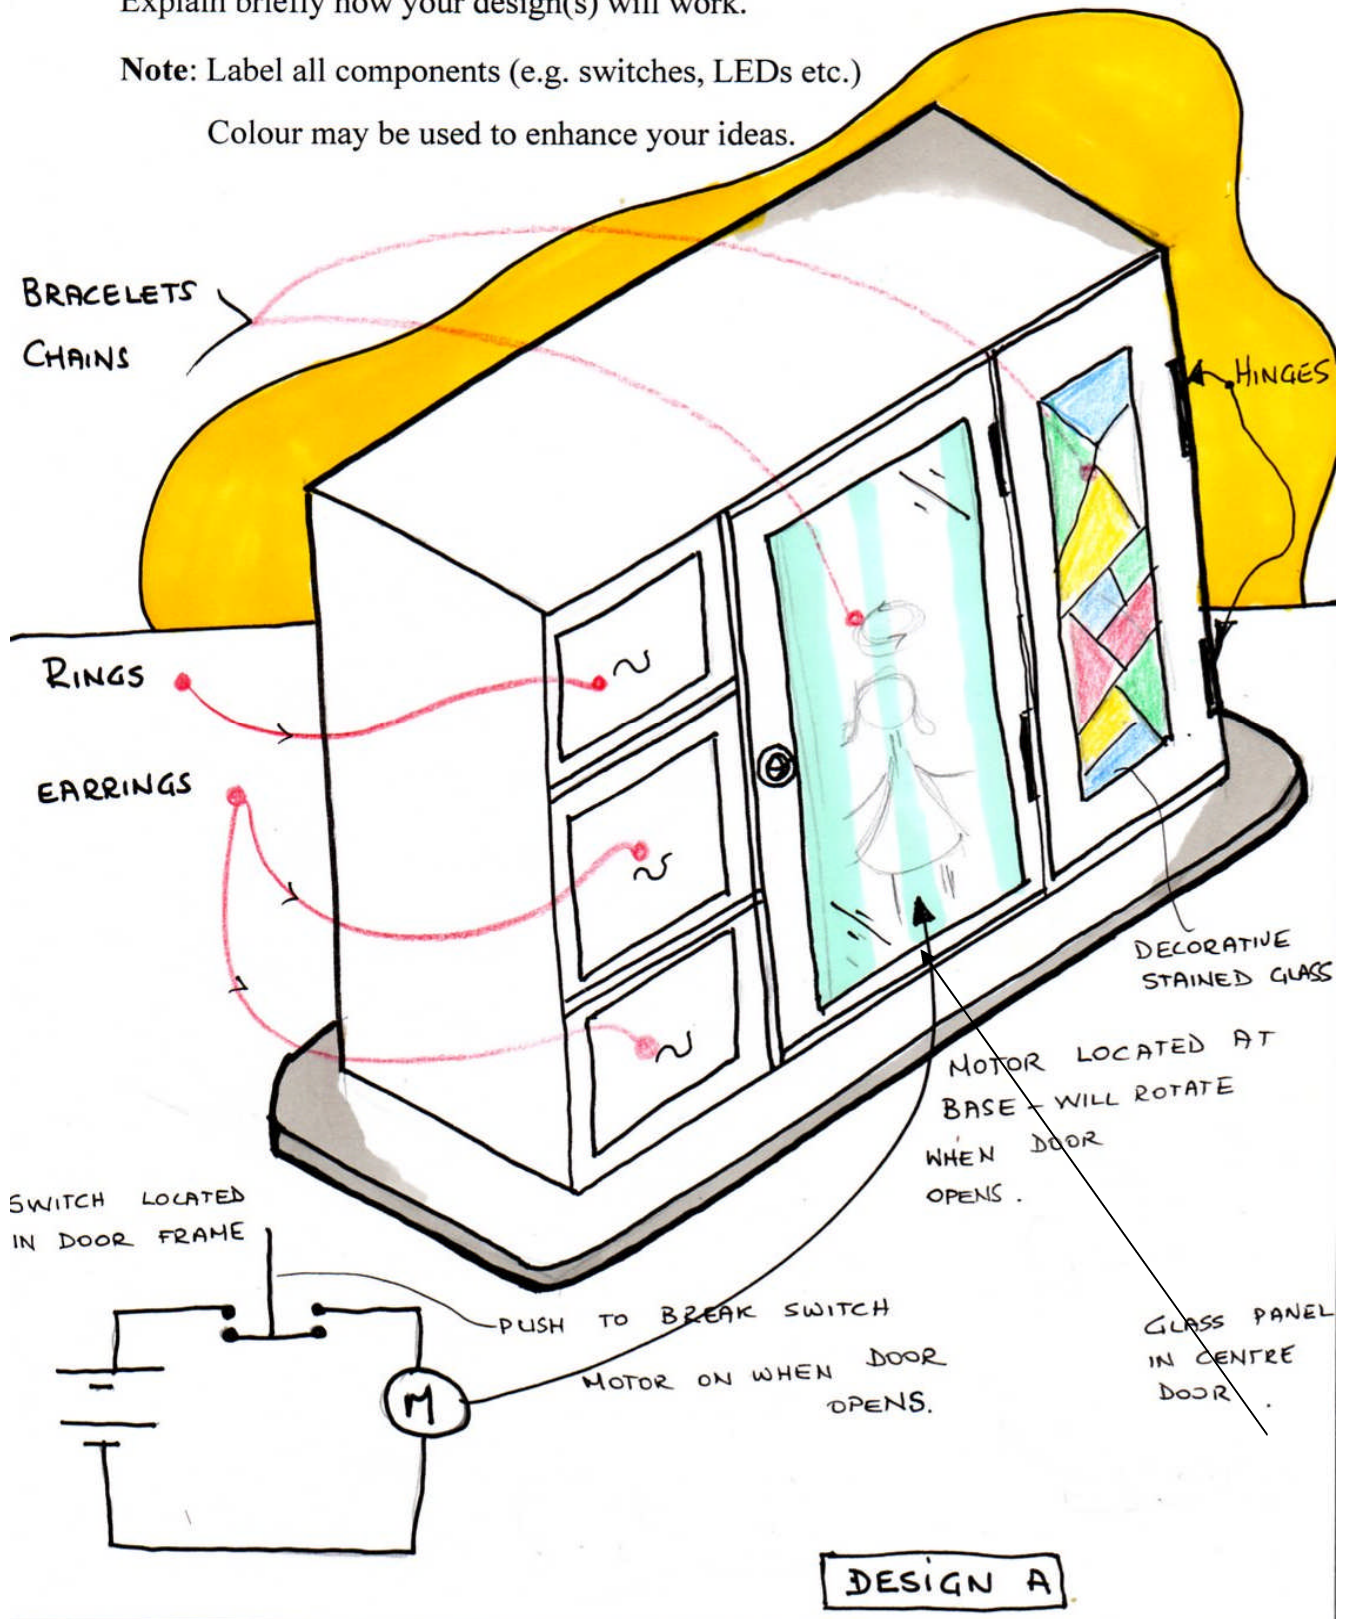 Explain briefly how your design(s) will work.
Note: Label all components (e.g. switches, LEDs etc.)
Colour may be used to enhance your ideas.
BRACELETS
CHAINS
HINGES
RINGS
EARRINGS
DECORATIVE
STAINED GLASS
MOTOR LOCATED AT
BASE - WILL ROTATE
WHEN DOOR
OPENS.
SWITCH LOCATED
IN DOOR FRAME
PUSH TO BREAK SWITCH
MOTOR ON WHEN DOOR
OPENS.
GLASS PANEL
IN CENTRE
DOOR.
M
DESIGN A